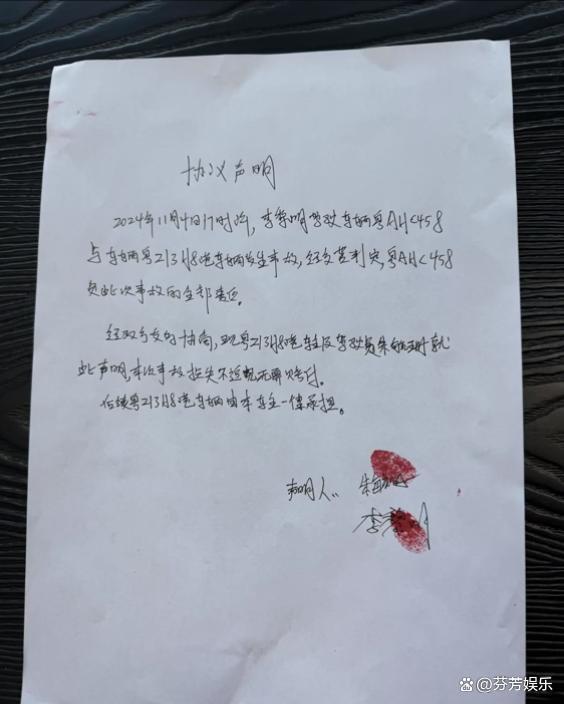 协议声明
2024年11月4日17时许，李黎明驾驶车辆粤AH<458
与车辆粤Z13H8港车辆发生事故，经交警判定，粤AH<458
负此次事故的全部责任。
经双方友好协商，现粤Z13H8港车主及驾驶员朱 就
此声明，本次事故损失不追究无需赔付。
后续粤Z13H8港车辆由本车主一律承担。
声明人：朱
李
芬芳娱乐